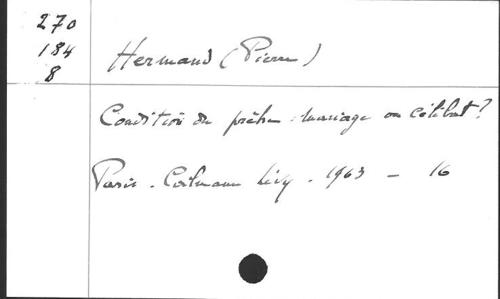 270
184
8
Hermand (Pierre)
Condition du prêtre : mariage ou célibat ?
Paris - Calmann Lévy - 1963 - 16